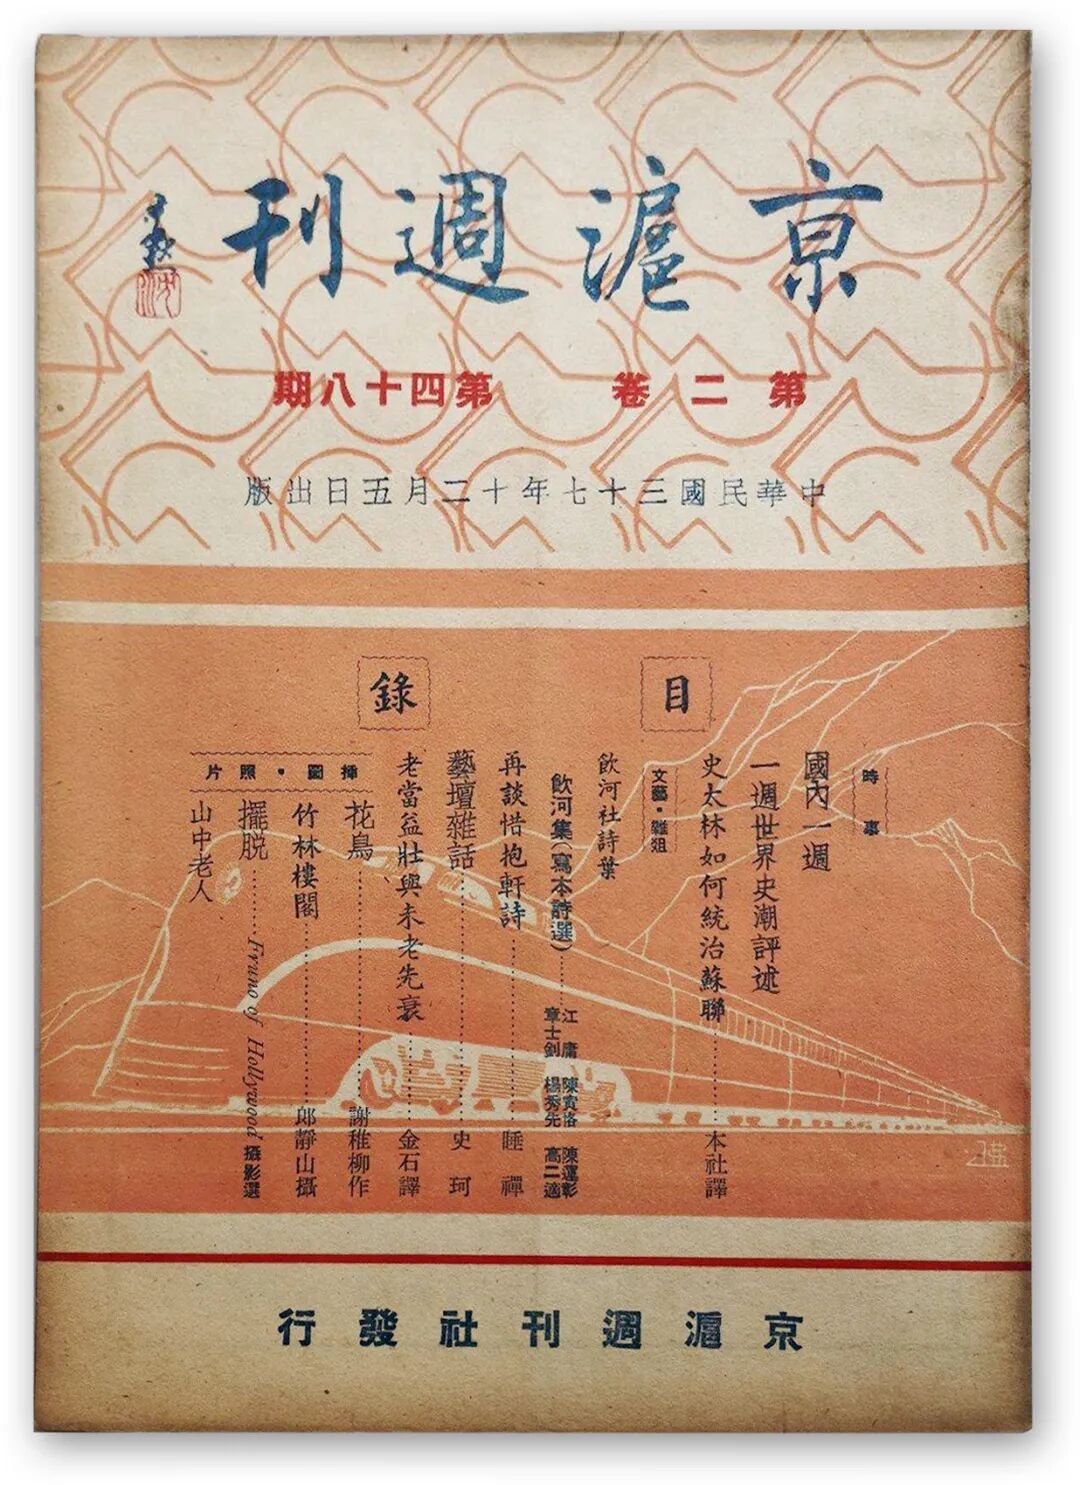 京滬週刊
第二卷 第四十八期
中華民國三十七年十二月五日出版
目錄
時事
國內一週
一週世界史潮評述
史太林如何統治蘇聯………本社譯
文藝・雜俎
飲河社詩葉
飲河集(寫本詩選)……江庸 陳寅恪 陳蓮彰 章士釗 楊秀先 高二適
再談惜抱軒詩………睡禪
藝壇雜話………史珂
老當益壯與未老先衰………金石譯
插圖・照片
花鳥………謝稚柳作
竹林樓閣………郎靜山攝
擺脱……Fruno of Hollywood 攝影選
山中老人
京滬週刊社發行